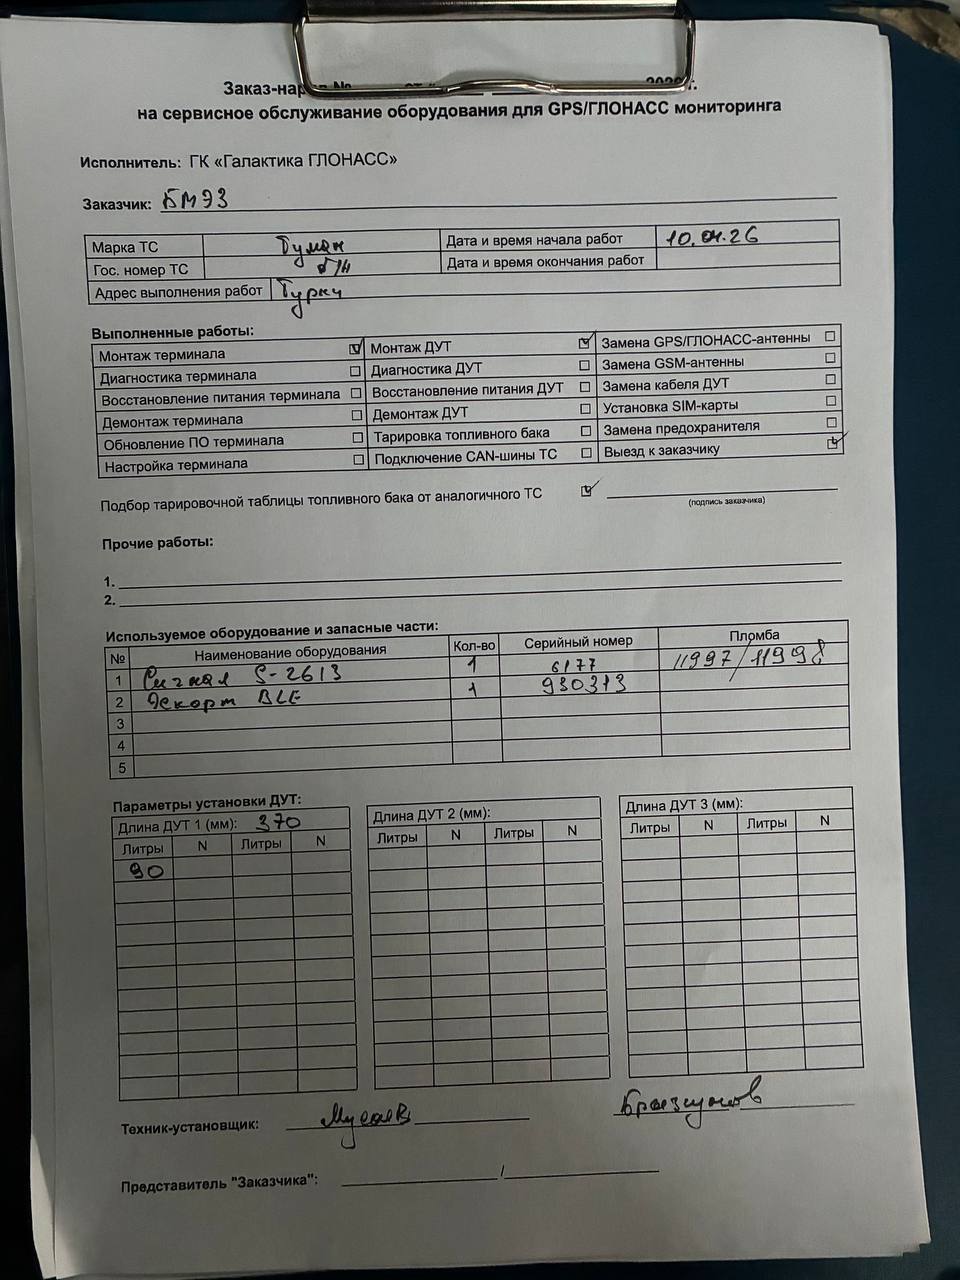 Заказ-наряд № от 202 г.
на сервисное обслуживание оборудования для GPS/ГЛОНАСС мониторинга
Исполнитель: ГК «Галактика ГЛОНАСС»
Заказчик: БМЭЗ
Марка ТС Туман Дата и время начала работ 10.04.26
Гос. номер ТС б/н Дата и время окончания работ
Адрес выполнения работ Турки
Выполненные работы:
Монтаж терминала ☑ Монтаж ДУТ ☑ Замена GPS/ГЛОНАСС-антенны ☐
Диагностика терминала ☐ Диагностика ДУТ ☐ Замена GSM-антенны ☐
Восстановление питания терминала ☐ Восстановление питания ДУТ ☐ Замена кабеля ДУТ ☐
Демонтаж терминала ☐ Демонтаж ДУТ ☐ Установка SIM-карты ☐
Обновление ПО терминала ☐ Тарировка топливного бака ☐ Замена предохранителя ☐
Настройка терминала ☐ Подключение CAN-шины ТС ☐ Выезд к заказчику ☑
Подбор тарировочной таблицы топливного бака от аналогичного ТС ☑
(подпись заказчика)
Прочие работы:
1.
2.
Используемое оборудование и запасные части:
№ Наименование оборудования Кол-во Серийный номер Пломба
1 Сигнал S-2613 1 6177 11997/11998
2 Эскорт BLE 1 930313
3
4
5
Параметры установки ДУТ:
Длина ДУТ 1 (мм): 370 Длина ДУТ 2 (мм): Длина ДУТ 3 (мм):
Литры N Литры N Литры N Литры N Литры N Литры N
90
Техник-установщик: Мусаев
Представитель "Заказчика": /